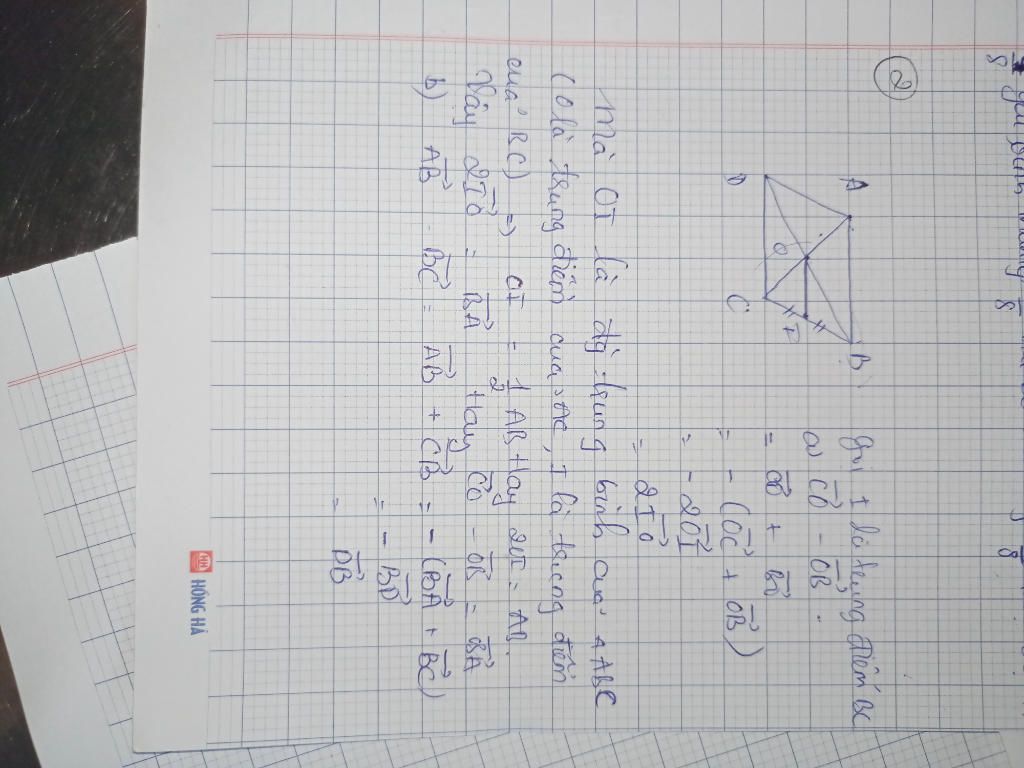 ②
A
B
O
I
D
C
Gọi I là trung điểm BC
a) CO - OB
= CO + BO
= - (OC + OB)
= - 2OI
= 2IO
Mà OI là đg trung bình của △ABC
(O là trung điểm của AC, I là trung điểm
của BC) => OI = 1/2 AB Hay 2OI = AB.
Vậy 2IO = BA Hay CO - OB = BA
b) AB - BC = AB + CB = - (BA + BC)
= - BD
= DB
HỒNG HÀ